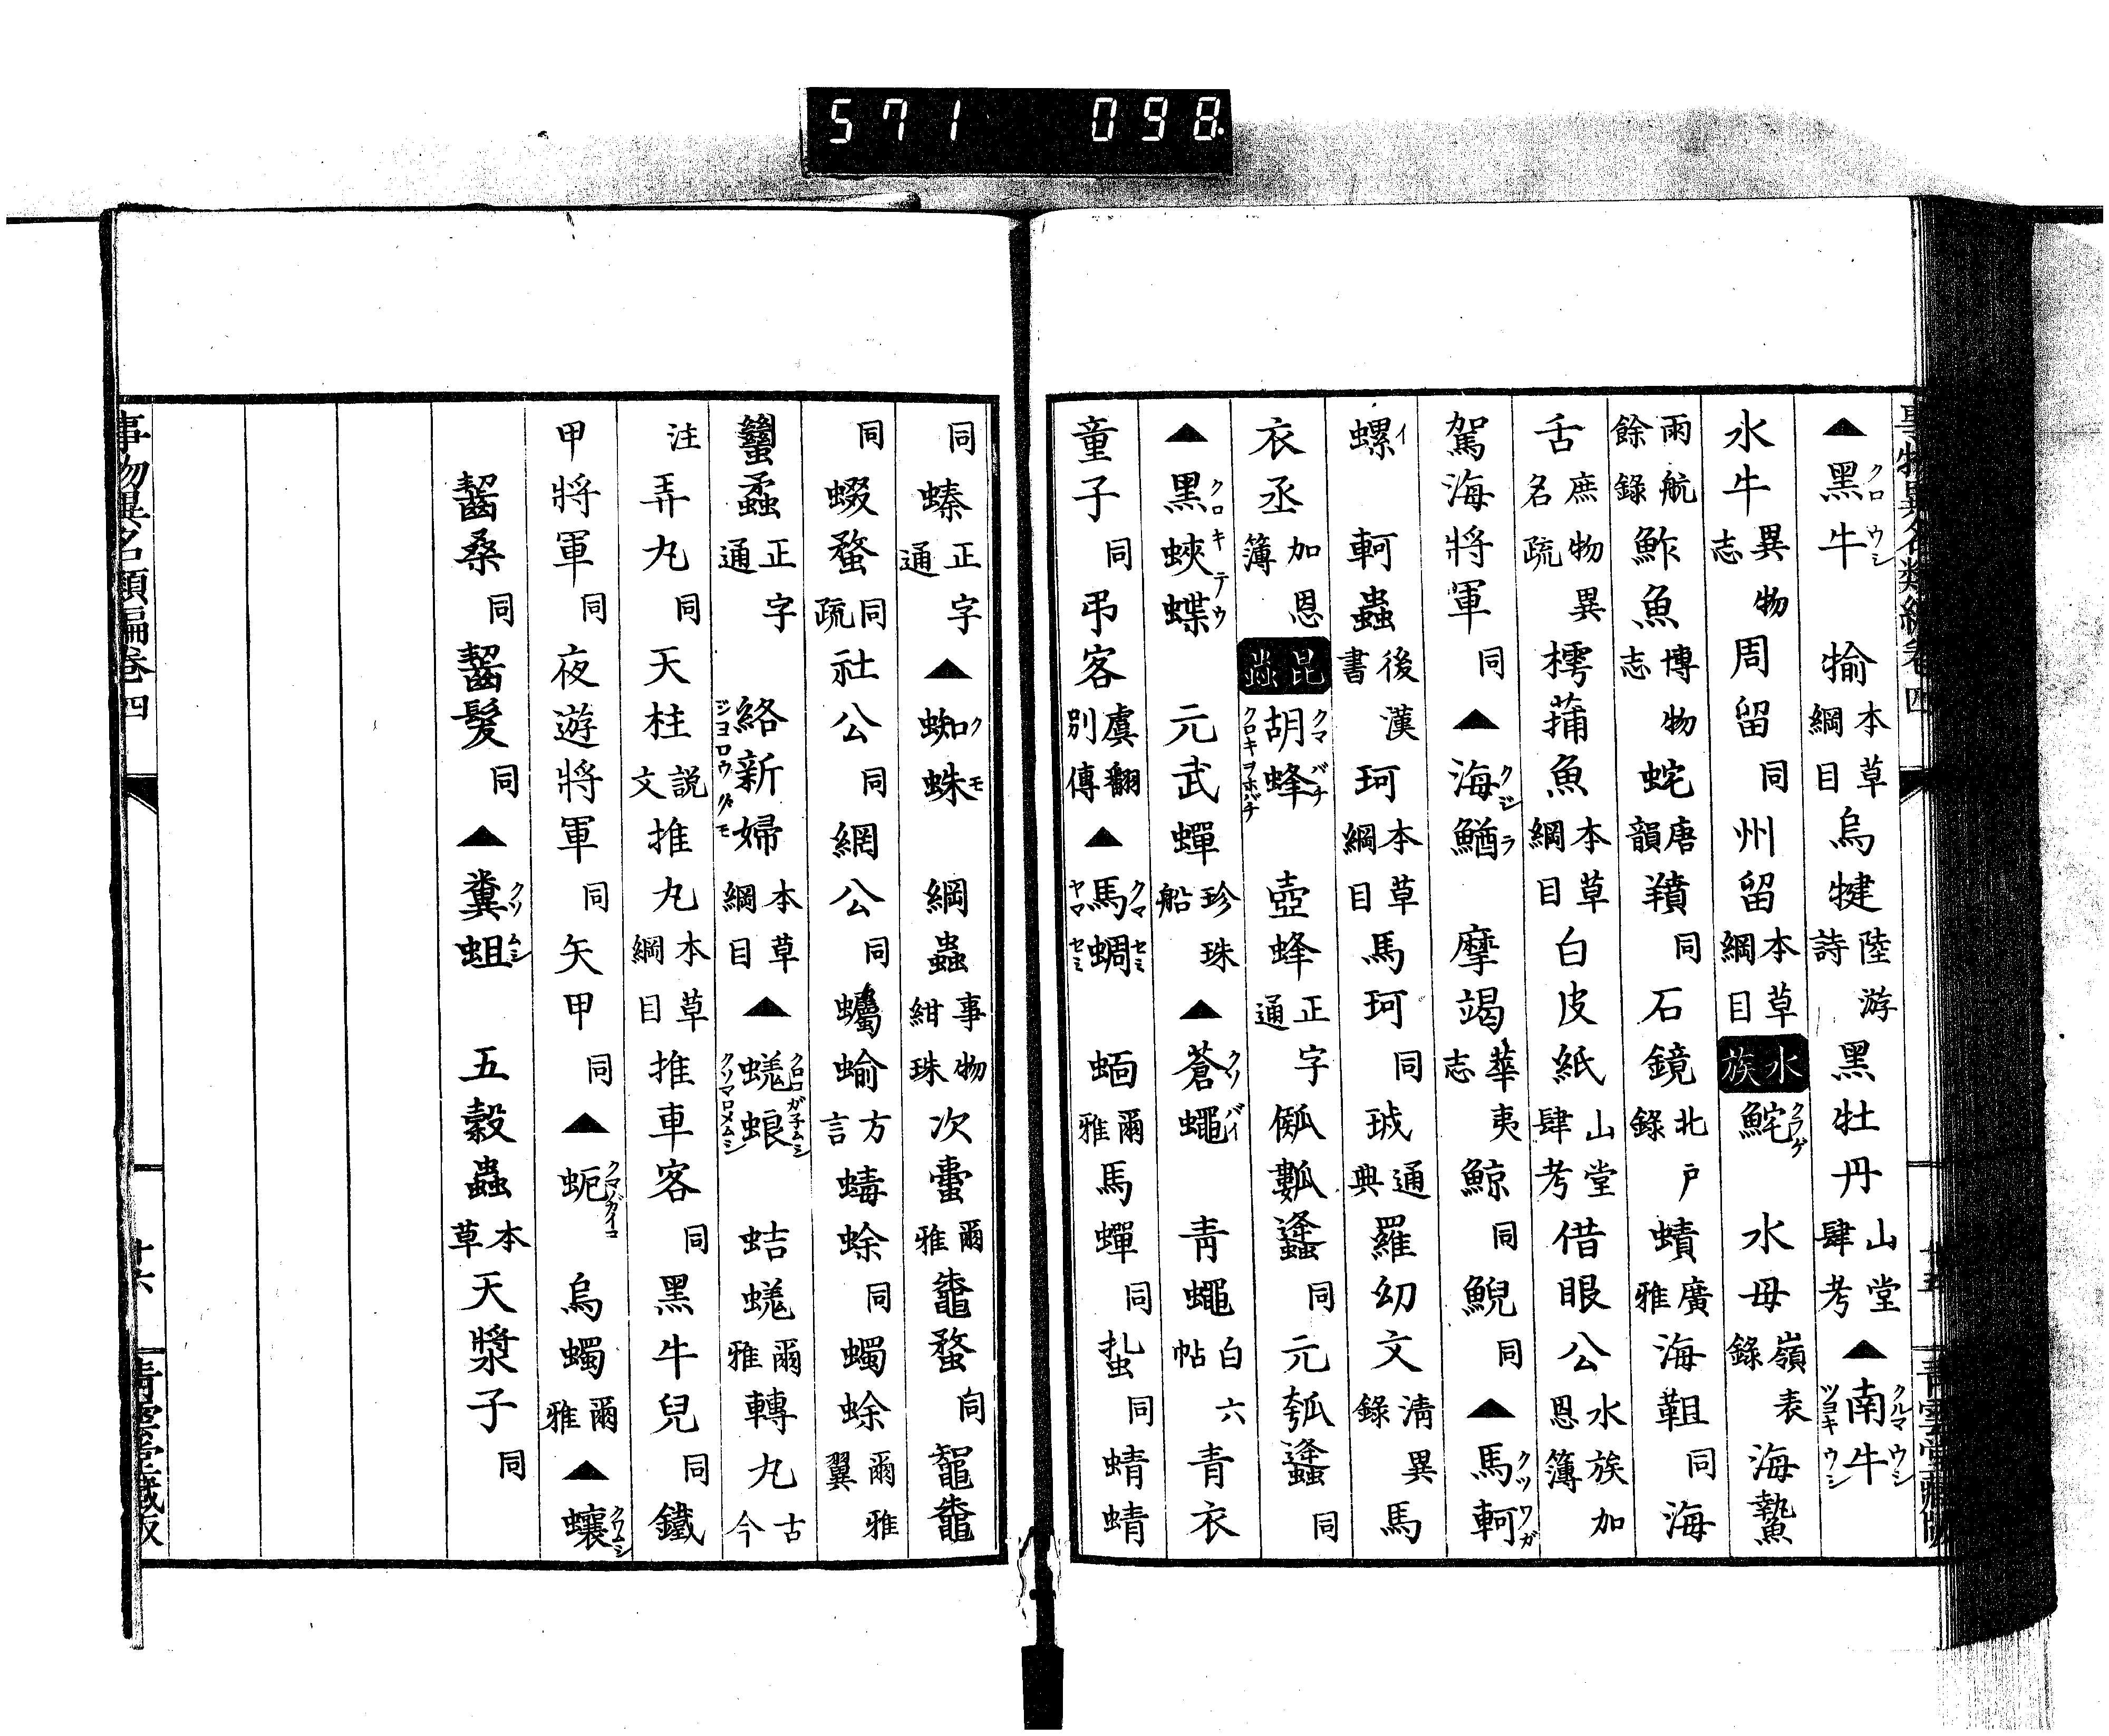 571 098.
▲黑牛クロウシ 㺄本草綱目 烏犍陸游詩 黑牡丹山堂肆考 ▲南牛クルマウシツヨキウシ
水牛異物志 周留同 州留本草綱目 水族 鮀クラゲ 水母嶺表錄 海䖳
雨航餘錄 鮓魚博物志 蛇唐韻 羵同 石鏡北戶錄 蟦廣雅 海䩆同 海
舌庶物異名疏 樗蒱魚本草綱目 白皮紙山堂肆考 借眼公水族加恩簿
駕海將軍同 ▲海鰌クジラ 摩竭華夷志 鯨同 鯢同 ▲馬軻クツワガ
螺イ 軻蟲後漢書 珂本草綱目 馬珂同 珬通典 羅幼文清異錄 馬
衣丞加恩簿 昆蟲 胡蜂クマバチクロキヲホバチ 壺蜂正字通 㼋㼎䗬同 元瓠䗬同
▲黑蛺蝶クロキテウ 元武蟬珍珠船 ▲蒼蠅クソバイ 青蠅白六帖 青衣
童子同 弔客虞翻別傳 ▲馬蜩クマセミヤマセミ 蝒爾雅 馬蟬同 蚻同 蜻蜻
事物異名類編卷四 廿五 青雲堂藏版
同 螓正字通 ▲蜘蛛クモ 網蟲事物紺珠 次蟗爾雅 鼅鼄同 鼅鼄
同 蝃蝥同疏 社公同 網公同 蠾蝓方言 蝳蜍同 蠋蜍爾雅翼
蠿蟊正字通 絡新婦ジヨロウグモ 本草綱目 ▲蜣蜋クロコガ子ムシクソマロメムシ 蛣蜣爾雅 轉丸古今
注 弄丸同 天柱說文 推丸本草綱目 推車客同 黑牛兒同 鐵
甲將軍同 夜遊將軍同 矢甲同 ▲蚅クマバカイコ 烏蠋爾雅 ▲蠰クワムシ
齧桑同 齧髮同 ▲糞蛆クソムシ 五穀蟲本草 天漿子同
事物異名類編卷四 廿六 青雲堂藏版